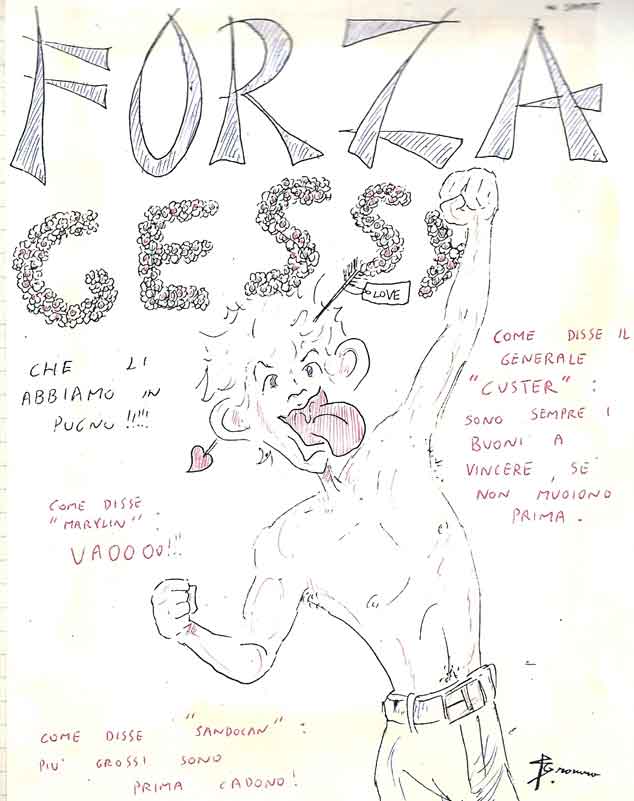 FORZA
GESSY
LOVE
CHE LI
ABBIAMO IN
PUGNO !!!!!
COME DISSE IL
GENERALE
"CUSTER" :
SONO SEMPRE I
BUONI A
VINCERE, SE
NON MUOIONO
PRIMA.
COME DISSE
"MARYLIN" :
VAOOOO!!!
COME DISSE "SANDOCAN" :
PIU' GROSSI SONO
PRIMA CADONO!